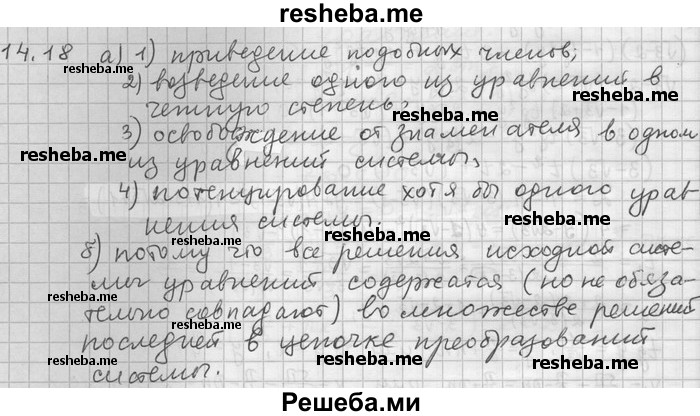 resheba.me
14.18 а) 1) приведение подобных членов;
resheba.me
2) возведение одного из уравнений в
resheba.me
четную степень;
resheba.me
3) освобождение от знаменателя в одном
resheba.me
из уравнений системы;
4) потенцирование хотя бы одного урав
resheba.me
нения системы.
resheba.me
б) потому что все решения исходной систе-
resheba.me
мы уравнений содержатся (но не обяза-
тельно совпадают) во множестве решений
resheba.me
resheba.me
последней в цепочке преобразований
resheba.me
resheba.me
resheba.me
системы.
Решеба.ми